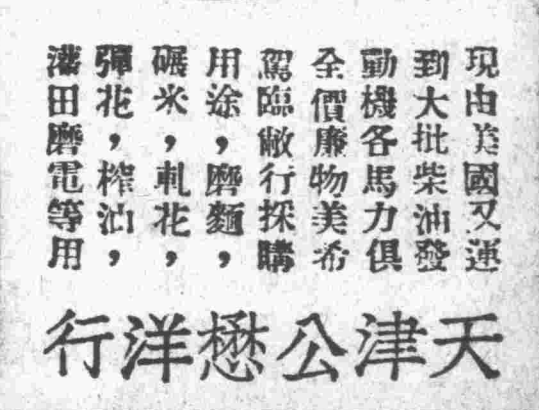 現由美國又運
到大批柴油發
動機各馬力俱
全價廉物美希
駕臨敝行採購
用途,磨麵,
碾米,軋花,
彈花,榨油,
灌田磨電等用
天津公懋洋行